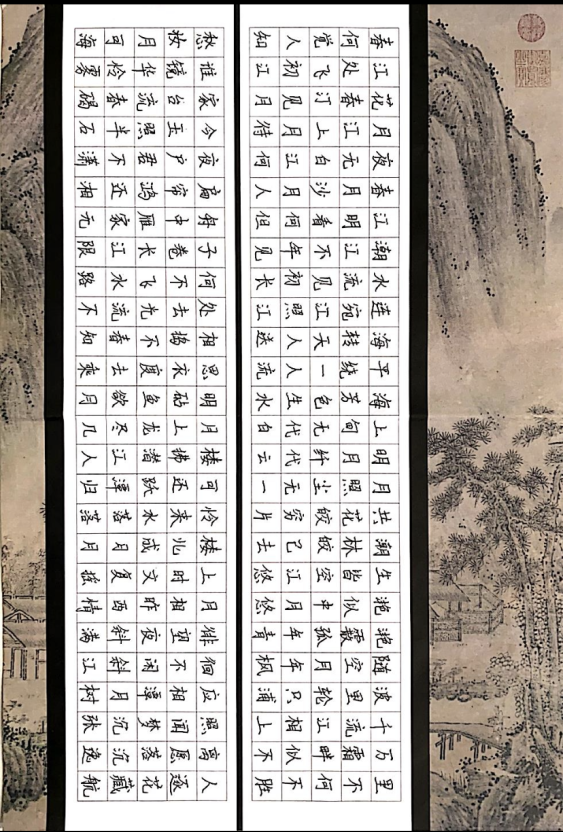 春江花月夜春江潮水连海平海上明月共潮生滟滟随波千万里
何处春江无月明江流宛转绕芳甸月照花林皆似霰空里流霜不
觉飞汀上白沙看不见江天一色无纤尘皎皎空中孤月轮江畔何
人初见月江月何年初照人人生代代无穷已江月年年只相似不
知江月待何人但见长江送流水白云一片去悠悠青枫浦上不胜
愁谁家今夜扁舟子何处相思明月楼可怜楼上月徘徊应照离人
妆镜台玉户帘中卷不去捣衣砧上拂还来此时相望不相闻愿逐
月华流照君鸿雁长飞光不度鱼龙潜跃水成文昨夜闲潭梦落花
可怜春半不还家江水流春去欲尽江潭落月复西斜斜月沉沉藏
海雾碣石潇湘无限路不知乘月几人归落月摇情满江树张逸航